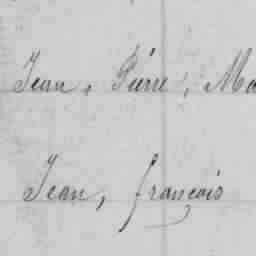 Jean, Pierre, Ma
Jean, françois